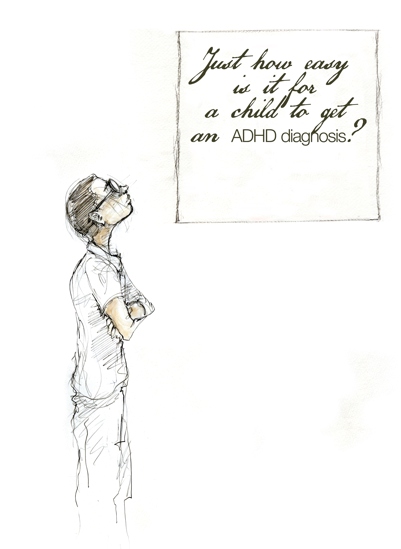 Just how easy
is it for
a child to get
an ADHD diagnosis.?